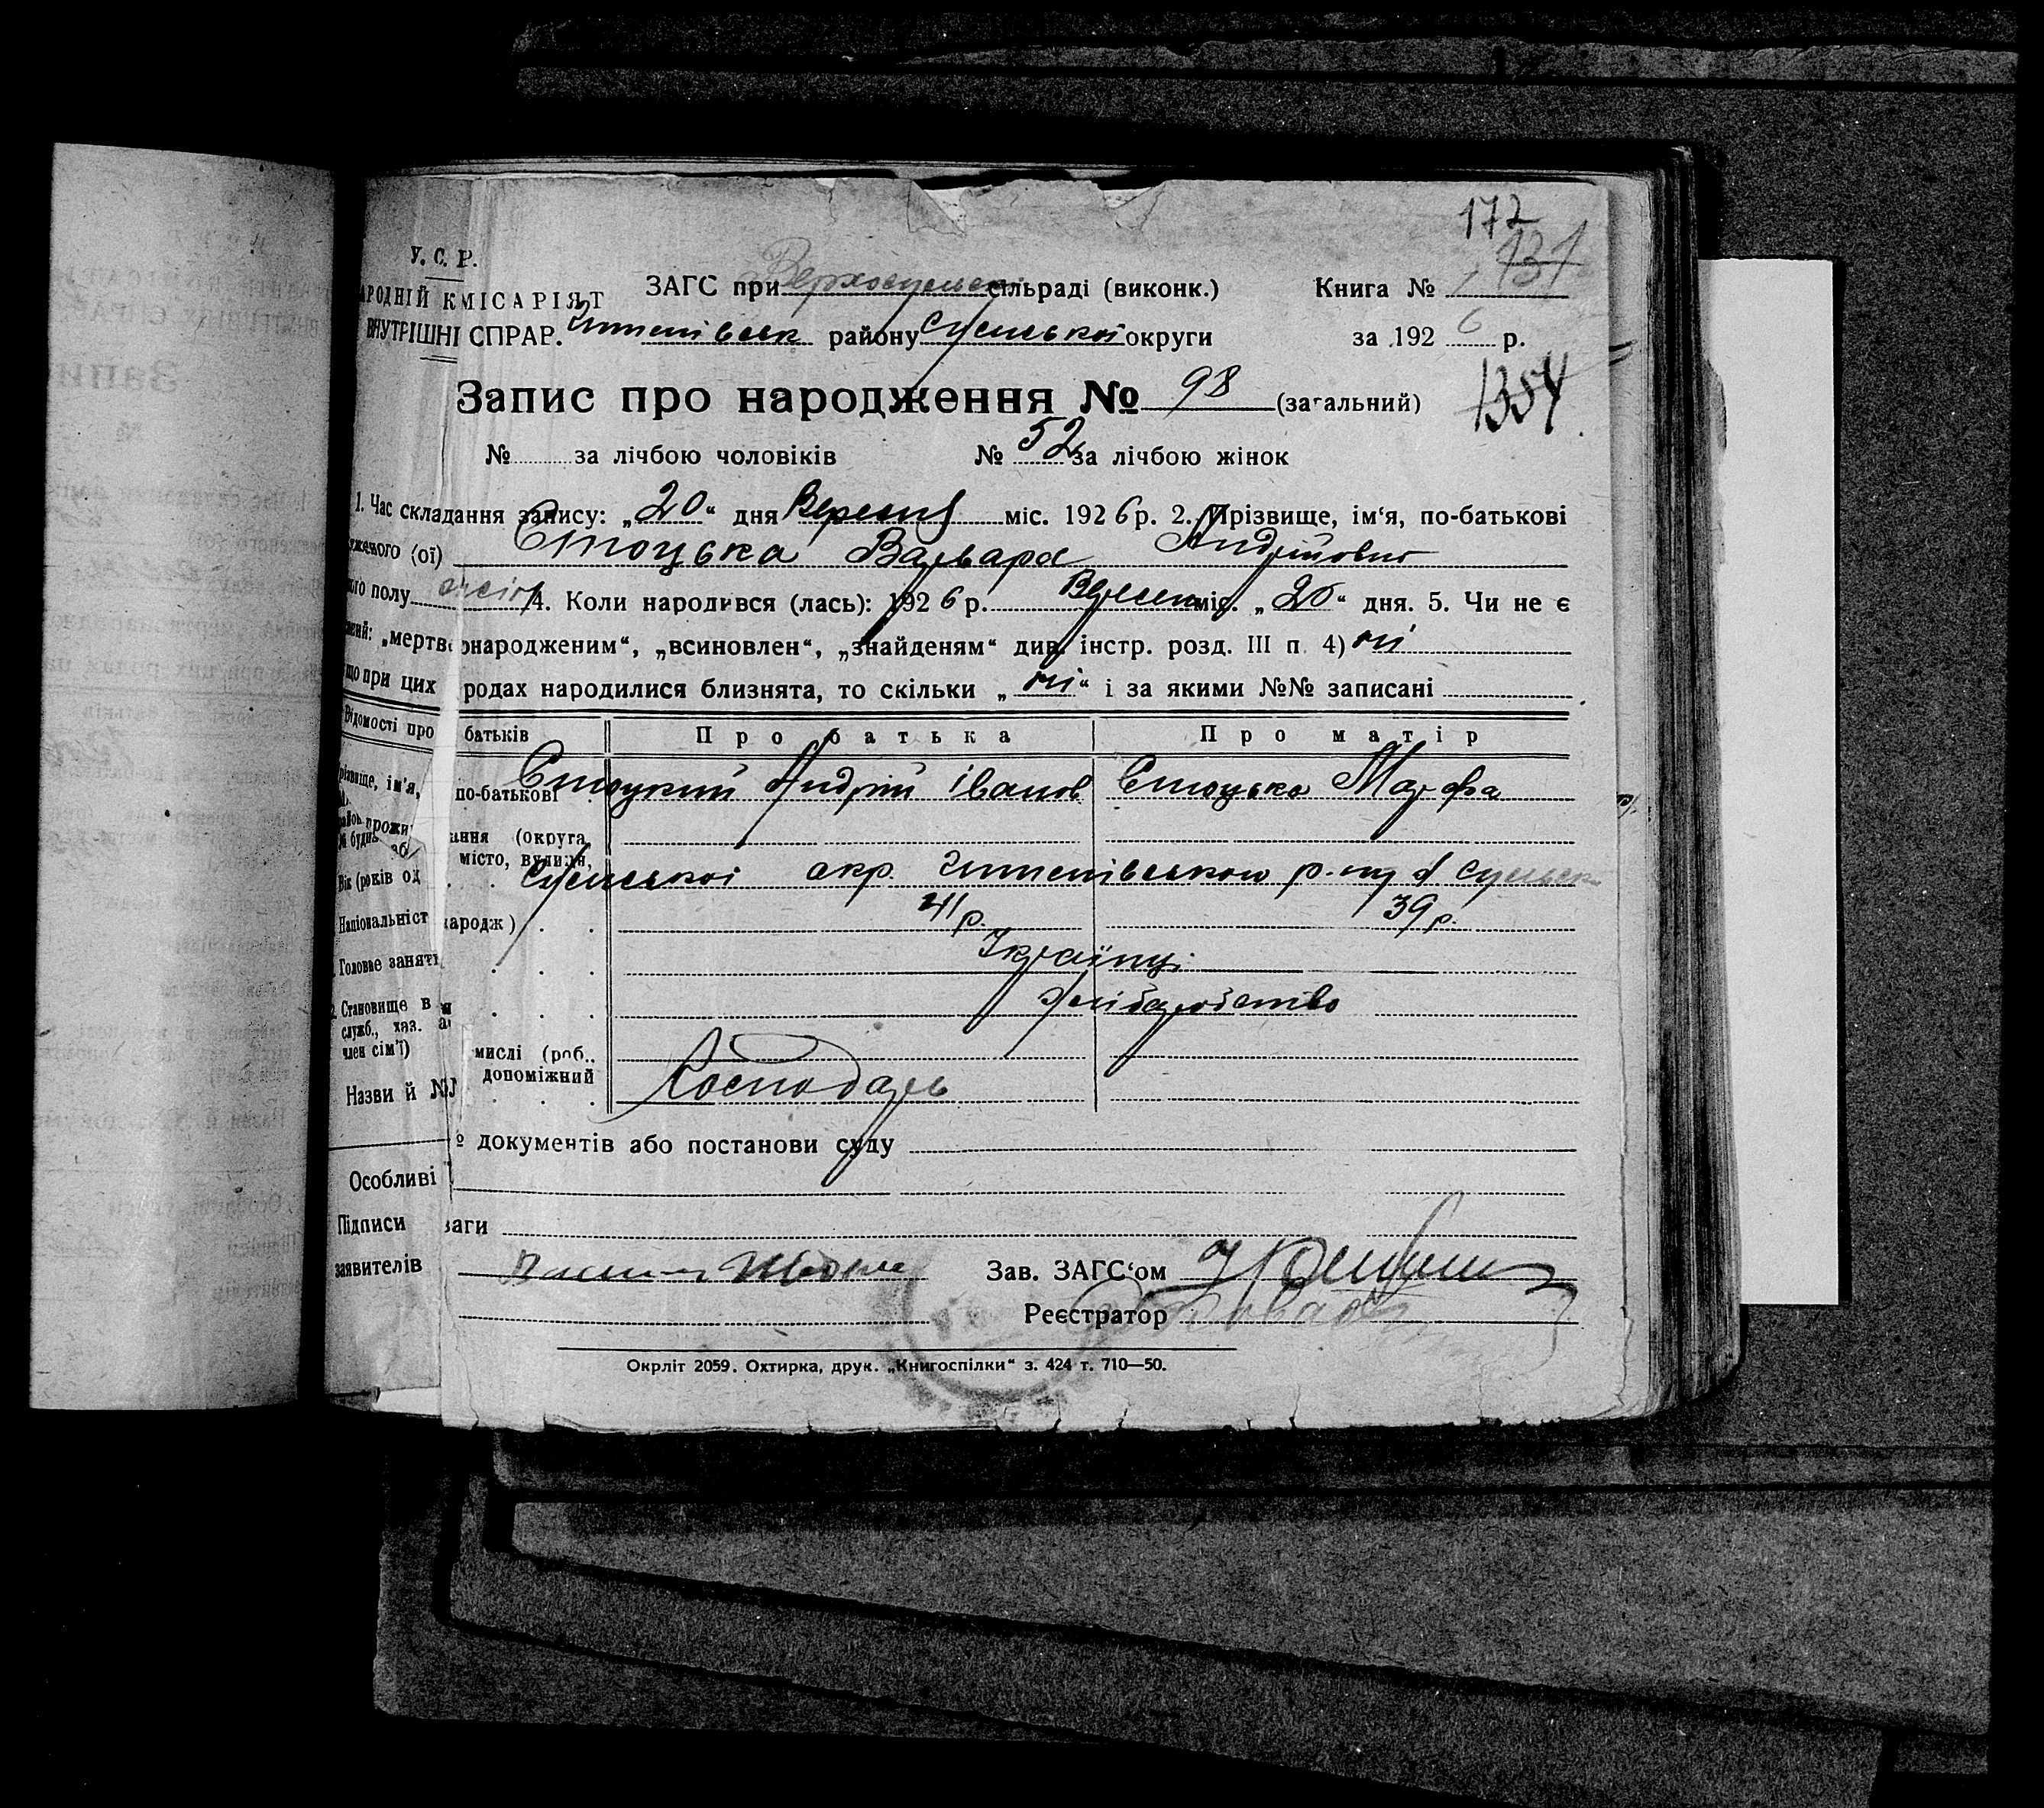 172
131
У. С. Р.
АРОДНІЙ КМІСАРІЯТ
ВНУТРІШНІ СПРАВ.
ЗАГС при Верхосульск сільраді (виконк.)
Книга № 1
Штепівськ району Сумської округи
за 1926 р.
Запис про народження № 98 (загальний)
1354
№ за лічбою чоловіків № 52 за лічбою жінок
1. Час складання запису: „20“ дня Вересня міс. 1926 р. 2. Прізвище, ім‘я, по-батькові
уженого (ої) Стоцька Варвара Андріївна
ого полу жіноч 4. Коли народився (лась): 1926 р. Вересня міс. „20“ дня. 5. Чи не є
ений: „мертвонародженим“, „всиновлен“, „знайденям“ див. інстр. розд. III п. 4) ні
що при цих родах народилися близнята, то скільки „ні“ і за якими №№ записані
Відомості про батьків Про батька Про матір
різвище, ім'я, по-батькові Стоцкий Андрій Іванов Стоцька Марфа
прожи ання (округа,
місто, вулиця,
Сумської окр. Штепівського р-ну
Вік (років од народж) 41 р. 39 р.
Національніст Українці
Головне занятт Хліборобство
Становище в
служб., хаз. а
член сім'ї)
мислі (роб.,
допоміжний
Господарь
Назви й №№ документів або постанови суду
Особливі
ваги
Підписи
заявителів
Зав. ЗАГС‘ом
Реєстратор
Окрліт 2059. Охтирка, друк. „Книгоспілки“ з. 424 т. 710—50.